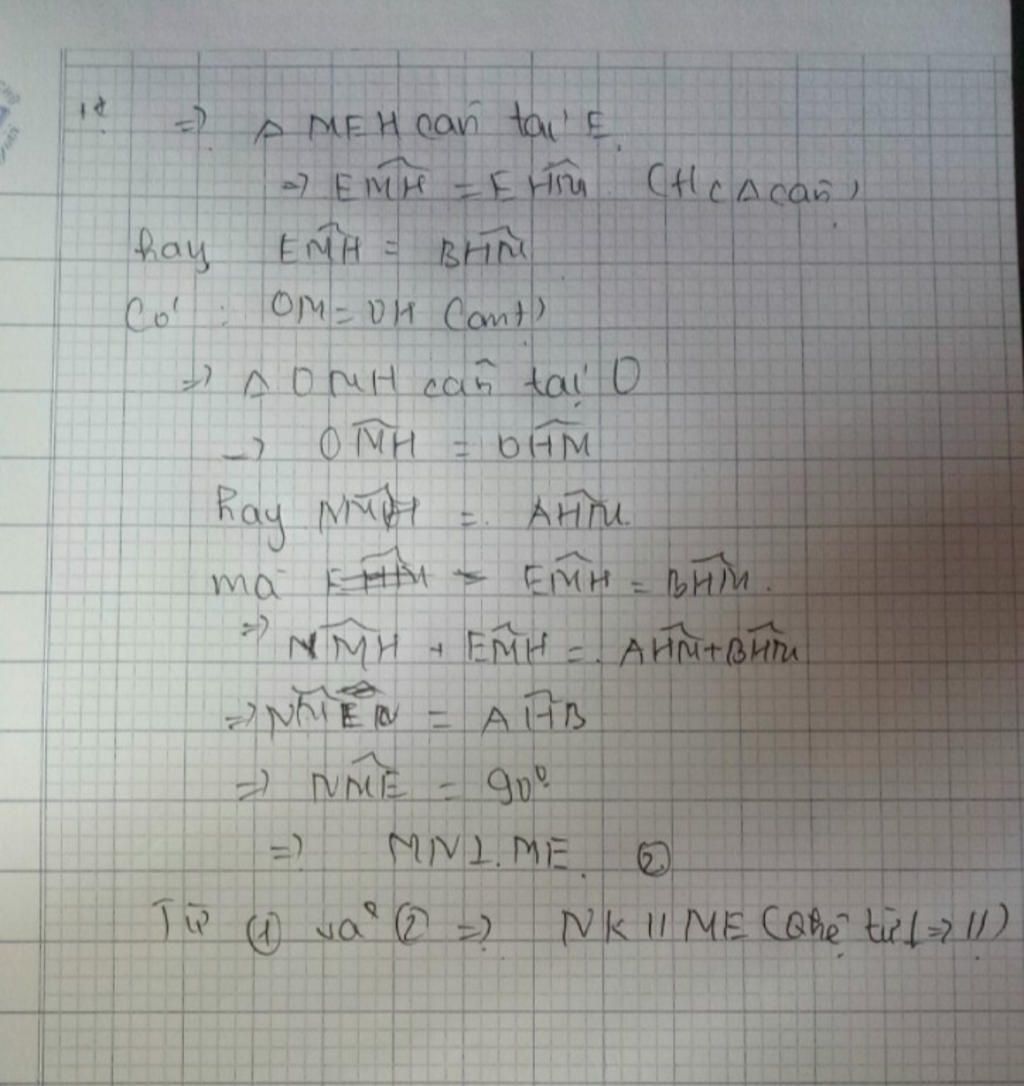 => Δ MEH cân tại E.
=> EM̂H = EĤM (t/c Δ cân)
hay EM̂H = BĤM
Có : OM = OH (cmt)
=> Δ OMH cân tại O
-> OM̂H = OĤM
hay NM̂H = AĤM.
mà EM̂H = BĤM.
=> NM̂H + EM̂H = AĤM + BĤM
=> NM̂E = AĤB
=> NM̂E = 90°
=> MN ⊥ ME. ②
Từ ① và ② => NK // ME (Qhệ từ ⊥ => //)